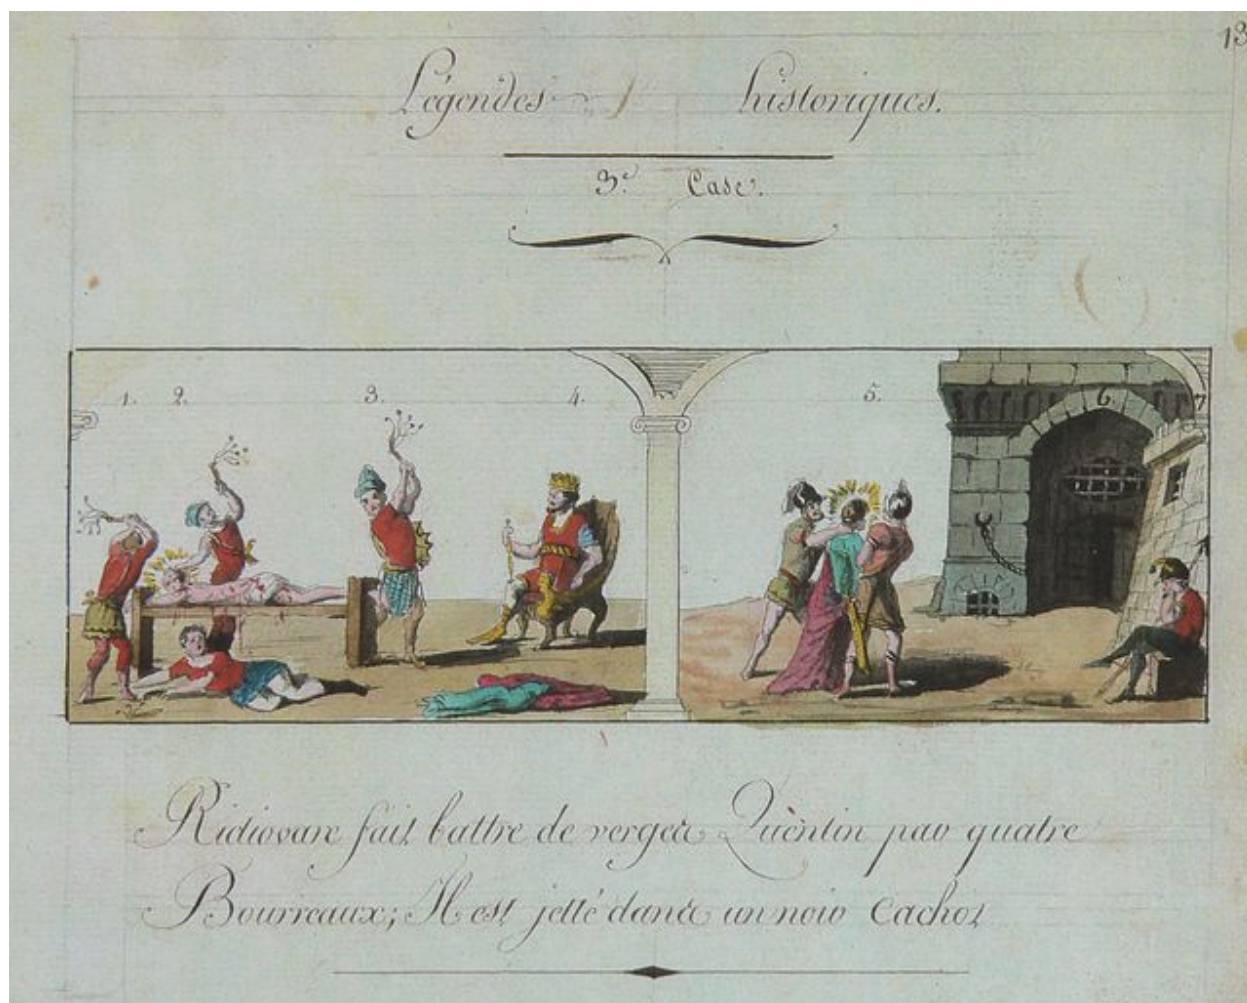 13
Légendes historiques.
3.e Case.
1. 2. 3. 4. 5. 6. 7
Ridiovare fait battre de verges Quèntin par quatre
Bourreaux; Il est jetté dans un noir Cachot